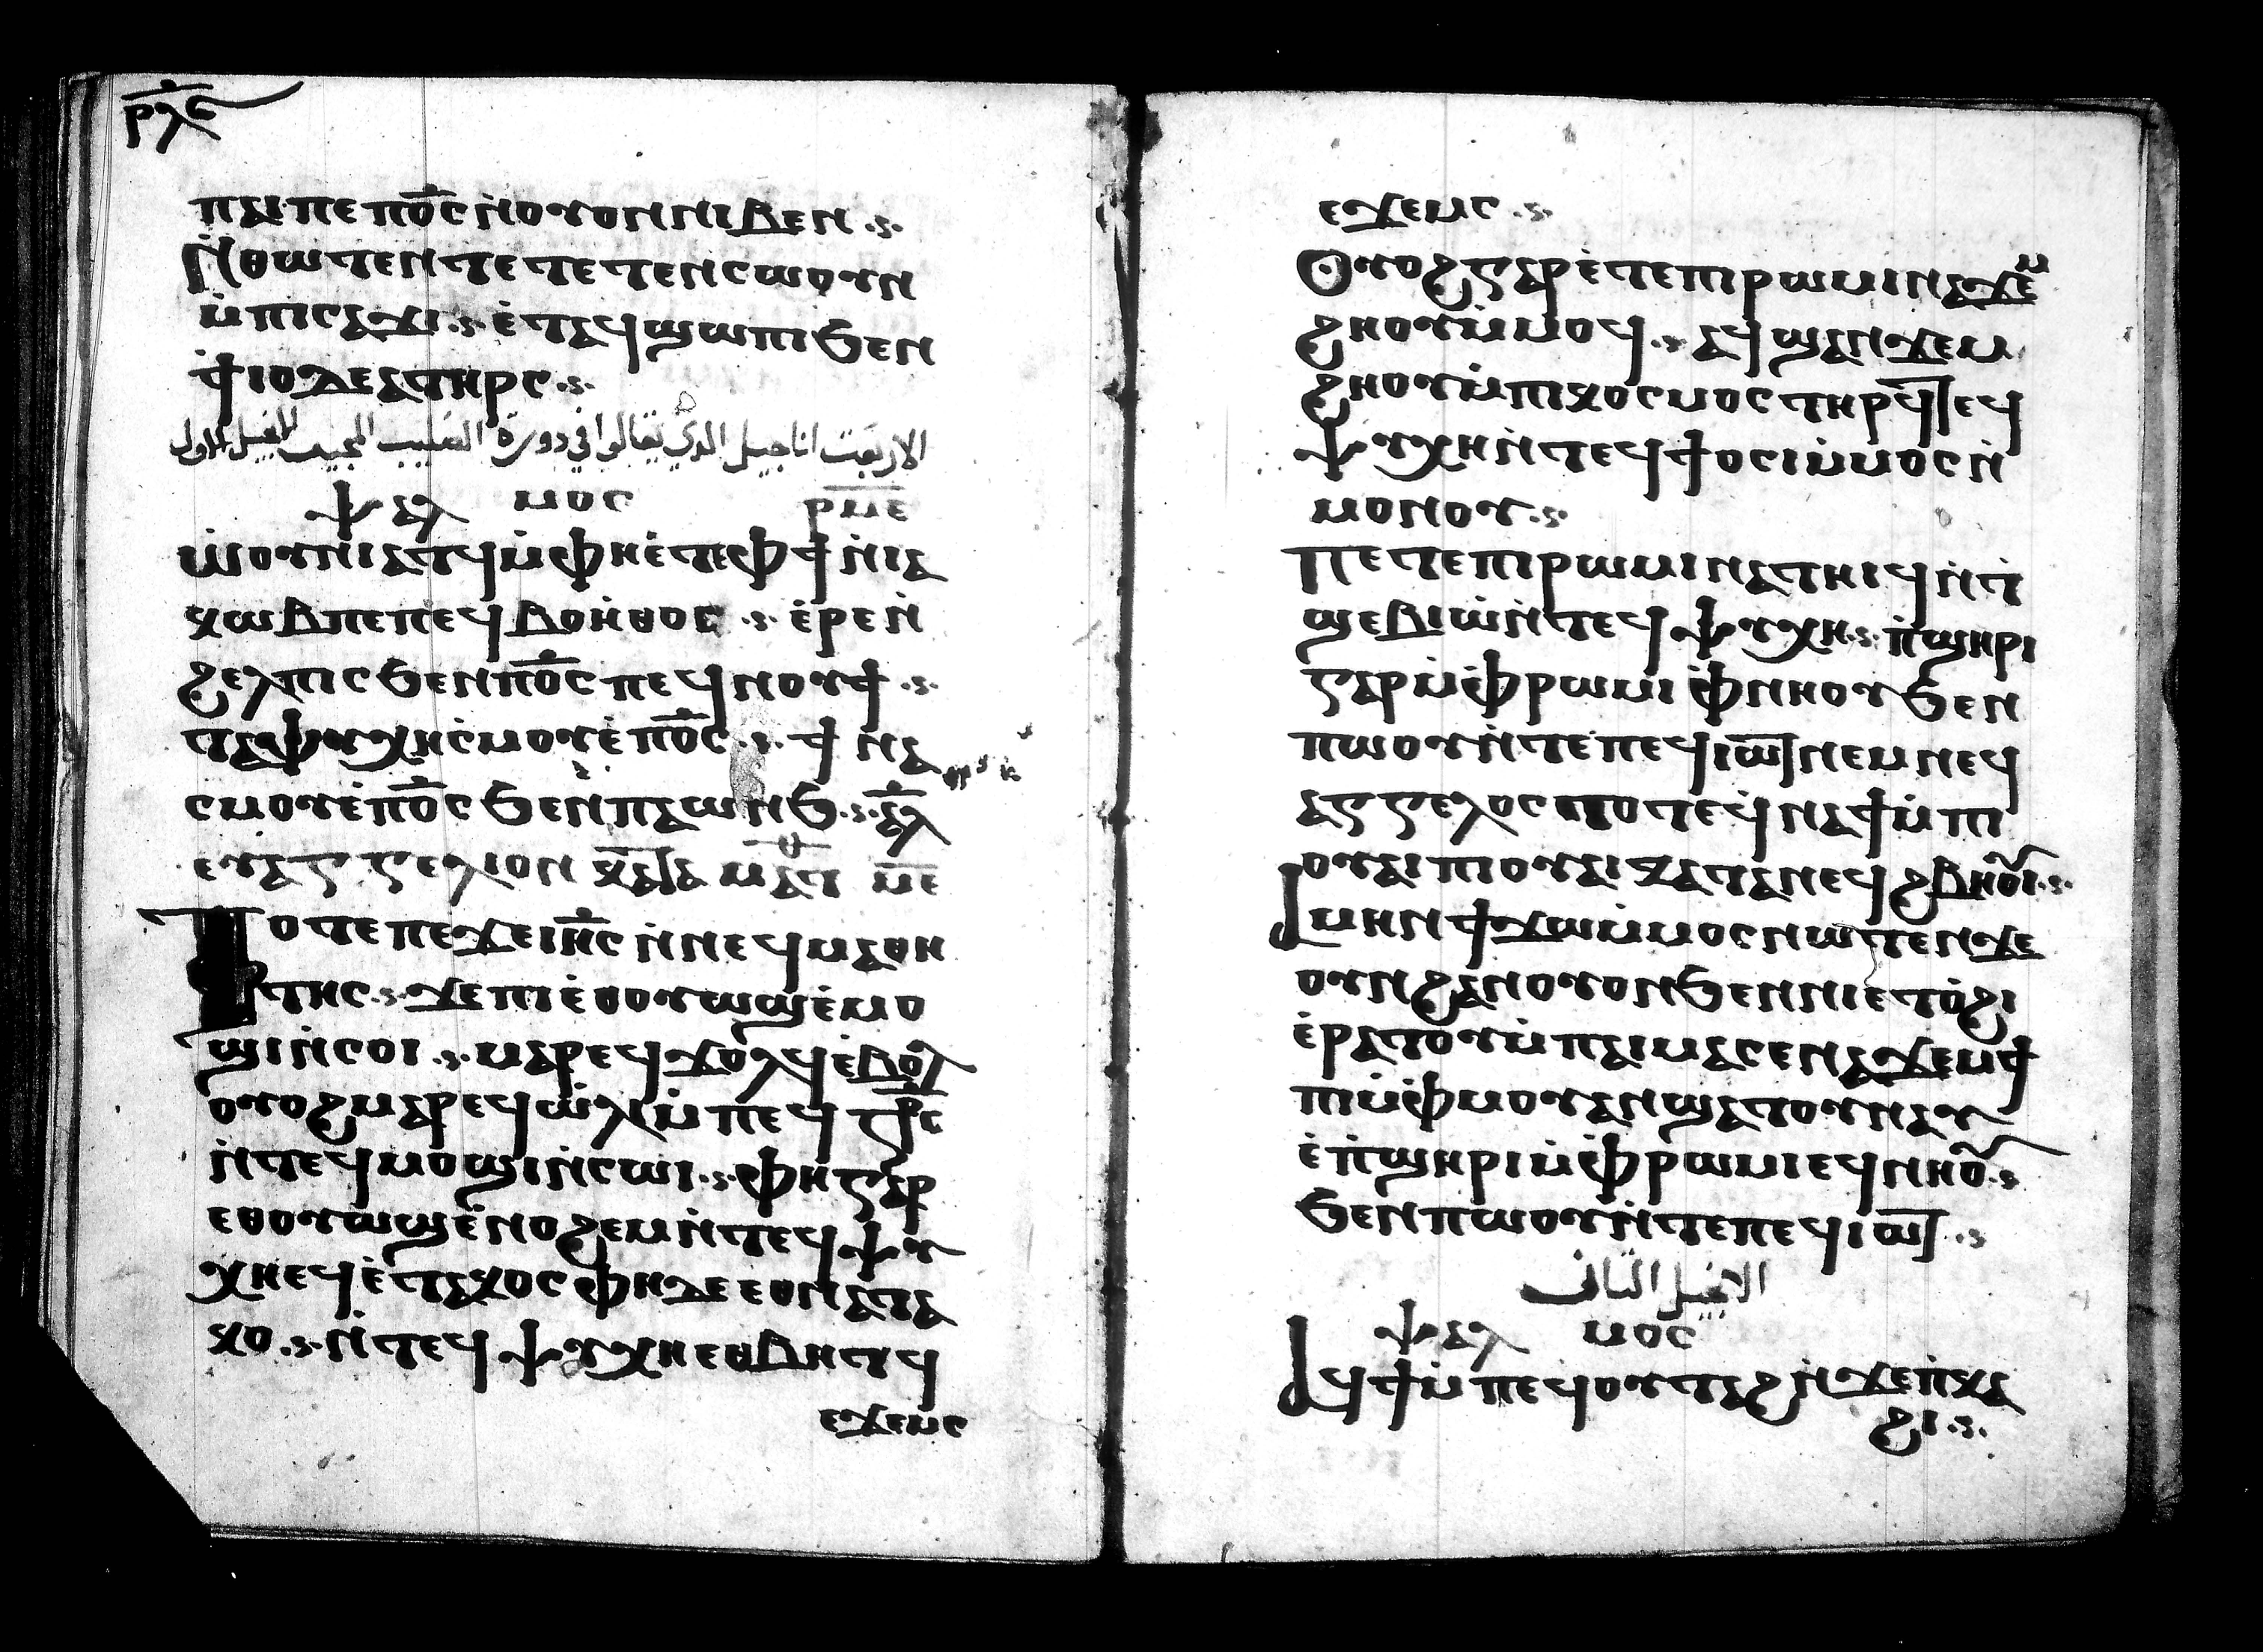 ⲣⲗⲋ
ⲡⲁⲓ ⲡⲉ ⲡⲟ̅ⲥ̅ ⲛ̀ⲟⲩⲟⲛ ⲛⲓⲃⲉⲛ .ⲥ.
Ⲛ̀ⲑⲱⲧⲉⲛ ⲧⲉⲧⲉⲧⲉⲛⲥⲱⲟⲩⲛ
ⲙ̀ⲡⲓⲥⲁϫⲓ .ⲥ. ⲉ̀ⲧⲁϥϣⲱⲡⲓ ϧⲉⲛ
ϯⲓⲟⲩⲇⲉⲁ ⲧⲏⲣⲥ .ⲥ.
الاربعت اناجيل الذي تقالوا في دورة الصليب المجيد الانجيل الاول
ⲯⲁⲗ ⲙⲟⲥ ⲣ̅ⲙ̅ⲉ̅
ⲱ̀ⲟⲩⲛⲓⲁⲧϥ ⲙ̀ⲫⲏⲉ̀ⲧⲉ ⲫϯ ⲛ̀ⲓⲁ
ⲕⲱⲃ ⲡⲉ ⲡⲉϥⲃⲟⲏ̀ⲑⲟⲥ .ⲥ. ⲉ̀ⲣⲉ ⲛ̀
ϩⲉⲗⲡⲓⲥ ϧⲉⲛ ⲡⲟ̅ⲥ̅ ⲡⲉϥⲛⲟⲩϯ .ⲥ.
ⲧⲁⲯⲩⲭⲏ ⲥ̀ⲙⲟⲩ ⲉ̀ⲡⲟ̅ⲥ̅ .ⲥ. ϯⲛⲁ
ⲥⲙⲟⲩ ⲉ̀ⲡⲟ̅ⲥ̅ ϧⲉⲛ ⲡⲁⲱⲛϧ .ⲥ. ⲁ̅ⲗ̅
ⲉⲩⲁⲅⲅⲉⲗⲓⲟⲛ ⲕⲁⲧⲁ ⲙⲁⲧⲑ ⲙ̅ⲉ̅
Ⲧⲟⲧⲉ ⲡⲉϫⲉ ⲓⲏ̅ⲥ̅ ⲛ̀ⲛⲉϥⲙⲁⲑⲏ
ⲧⲏⲥ .ⲥ. ϫⲉ ⲡⲓⲉ̀ⲑⲟⲩⲱϣ ⲉ̀ⲙⲟ
ϣⲓ ⲛ̀ⲥⲟⲓ .ⲥ. ⲙⲁⲣⲉϥϫⲟⲗϥ ⲉ̀ⲃⲟⲗ
ⲟⲩⲟϩ ⲙⲁⲣⲉϥⲱ̀ⲗⲓ ⲙ̀ⲡⲉϥⲥ̅ⲧ̅ⲣ̅ⲥ̅
ⲛ̀ⲧⲉϥⲙⲟϣⲓ ⲛ̀ⲥⲱⲓ .ⲥ. ⲫⲏ ⲅⲁⲣ
ⲉⲑⲟⲩⲱϣ ⲉ̀ⲛⲟϩⲉⲙ ⲛ̀ⲧⲉϥⲯⲩ
ⲭⲏ ⲉϥⲉ̀ⲧⲁⲕⲟⲥ ⲫⲏ ⲇⲉ ⲉⲑⲛⲁⲧⲁ
ⲕⲟ .ⲥ. ⲛ̀ⲧⲉϥⲯⲩⲭⲏ ⲉⲑⲃⲏⲧϥ
ⲉϫⲉⲙⲥ
ⲉϫⲉⲙⲥ .ⲥ.
Ⲟⲩⲟϩ ⲅⲁⲣ ⲉ̀ⲧⲉ ⲡⲓⲣⲱⲙⲓ ⲛⲁϫⲉⲙ
ϩⲏⲟⲩ ⲙ̀ⲙⲟϥ .ⲥ. ⲁϥϣⲁⲛϫⲉⲙ
ϩⲏⲟⲩ ⲙ̀ⲡⲓⲕⲟⲥⲙⲟⲥ ⲧⲏⲣϥ ⲧⲉϥ
ⲯⲩⲭⲏ ⲛ̀ⲧⲉϥϯⲟⲥⲓ ⲙ̀ⲙⲟⲥ ⲛ̀
ⲙⲟⲛⲟⲩ .ⲥ.
Ⲡⲉⲧⲉ ⲡⲓⲣⲱⲙⲓ ⲛⲁⲧⲏⲓϥ ⲛ̀ⲧ̀
ϣⲉⲃⲓⲱ̀ ⲛ̀ⲧⲉϥⲯⲩⲭⲏ .ⲥ. ⲡ̀ϣⲏⲣⲓ
ⲅⲁⲣ ⲙ̀ⲫ̀ⲣⲱⲙⲓ ⲫ̀ⲛⲏⲟⲩ ϧⲉⲛ
ⲡⲱⲟⲩ ⲛ̀ⲧⲉ ⲡⲉϥⲓⲱⲧ ⲛⲉⲙ ⲛⲉϥ
ⲁⲅⲅⲉⲗⲟⲥ ⲧⲟⲧⲉ ϥ̀ⲛⲁϯ ⲙ̀ⲡⲓ
ⲟⲩⲁⲓ ⲡⲓⲟⲩⲁⲓ ⲕⲁⲧⲁ ⲛⲉϥϩⲃⲏⲟⲩⲓ .ⲥ.
Ⲁⲙⲏⲛ ϯϫⲱ ⲙ̀ⲙⲟⲥ ⲛⲱⲧⲉⲛ ϫⲉ
ⲟⲩⲛ ϩⲁⲛⲟⲩⲟⲛ ϧⲉⲛ ⲛⲓⲉⲧⲟ̀ϩⲓ
ⲉ̀ⲣⲁⲧⲟⲩ ⲙ̀ⲡⲁⲓⲙⲁ ⲥⲉⲛⲁϫⲉⲙϯ
ⲡⲓ ⲙ̀ⲫ̀ⲙⲟⲩ ⲁⲛ ϣⲁⲧⲟⲩⲛⲁⲩ
ⲉ̀ⲡ̀ϣⲏⲣⲓ ⲙ̀ⲫ̀ⲣⲱⲙⲓ ⲉϥⲛⲏⲟⲩ .ⲥ
ϧⲉⲛ ⲡⲱⲟⲩ ⲛ̀ⲧⲉ ⲡⲉϥⲓⲱⲧ .ⲥ
الانجيل الثاني
ⲯⲁⲗ ⲙⲟⲥ
Ⲁϥϯ ⲙ̀ⲡⲉϥⲟⲩⲧⲁϩ ⲛ̀ϫⲉ ⲡ̀ⲕⲁ
ϩⲓ .ⲥ.